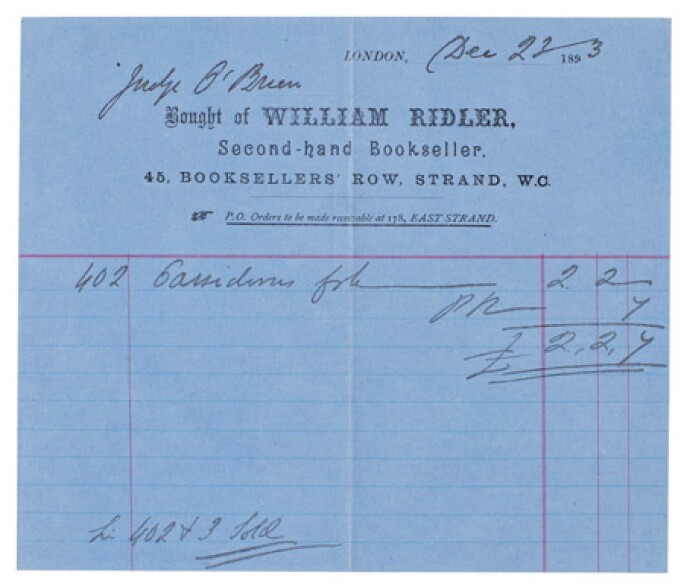 LONDON, Dec 22 1893
Judge O'Brien
Bought of WILLIAM RIDLER,
Second-hand Bookseller,
45, BOOKSELLERS' ROW, STRAND, W.C.
P.O. Orders to be made receivable at 178, EAST STRAND.
402 Cassiodorus 2 2
£ 2, 2,
402 & 3 Sold